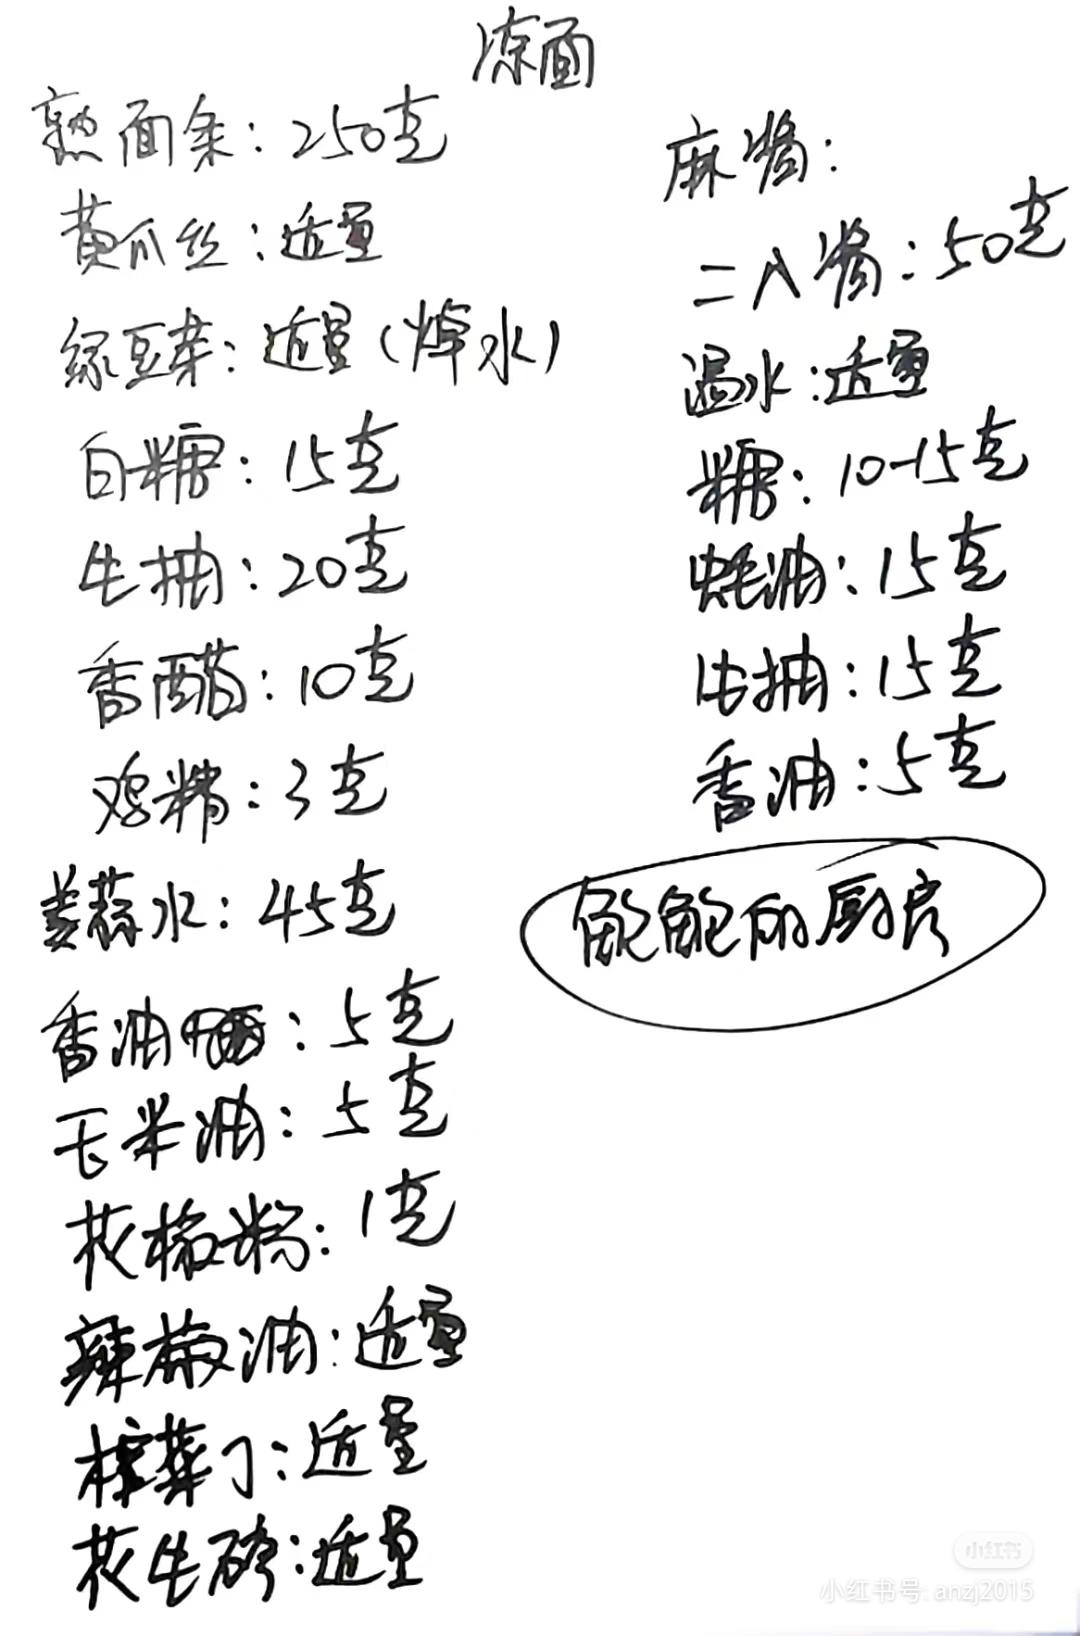 凉面
熟面条：250克
黄瓜丝：适量
绿豆芽：适量（焯水）
白糖：15克
生抽：20克
香醋：10克
鸡精：3克
姜蒜水：45克
香油：5克
玉米油：5克
花椒粉：1克
辣椒油：适量
榨菜丁：适量
花生碎：适量
麻酱：
二八酱：50克
温水：适量
糖：10-15克
蚝油：15克
生抽：15克
香油：5克
鲍鲍的厨房
小红书
小红书号: anzj2015